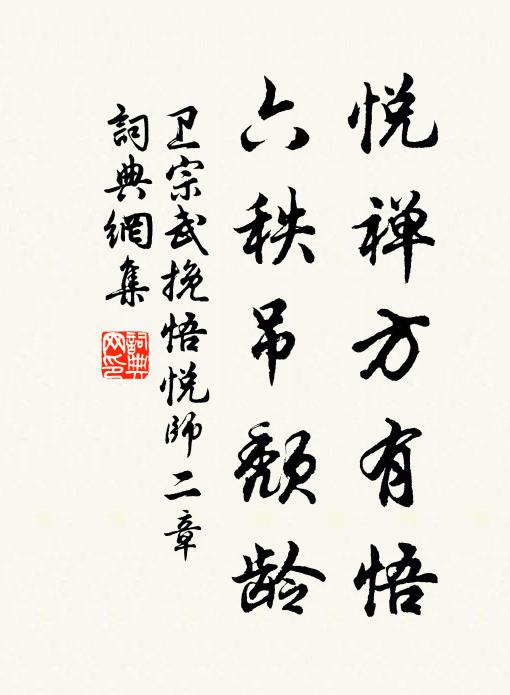 悦禅方有悟
六秩吊颓龄
卫宗武挽悟悦師二章
詞典網集
詞典网印